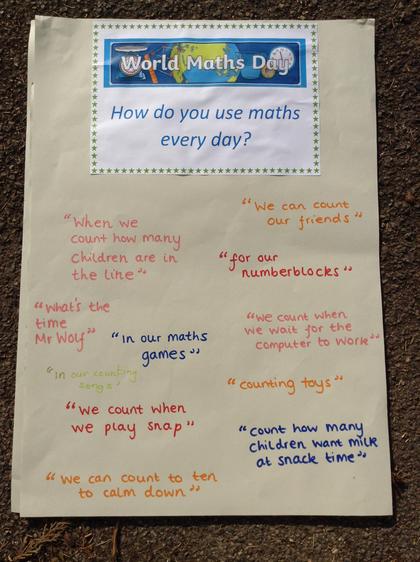 World Maths Day
How do you use maths
every day?
"We can count
our friends"
"When we
count how many
children are in
the line"
"for our
numberblocks"
"What's the
time
Mr Wolf"
"In our maths
games"
"We count when
we wait for the
computer to work"
"In our counting
songs"
"counting toys"
"We count when
we play snap"
"count how many
children want milk
at snack time"
"We can count to ten
to calm down"